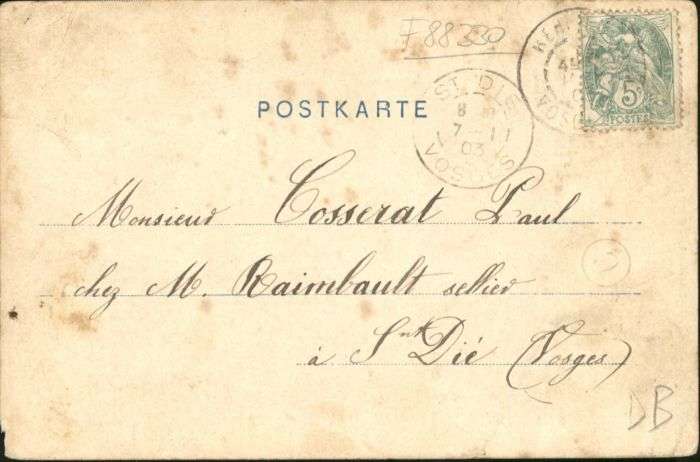 F88330
5c
POSTES
ST DIÉ
7 - 11
03
VOSGES
POSTKARTE
Monsieur Cosserat Paul
chez M. Raimbault sellier
à Snt Dié (Vosges)
DB